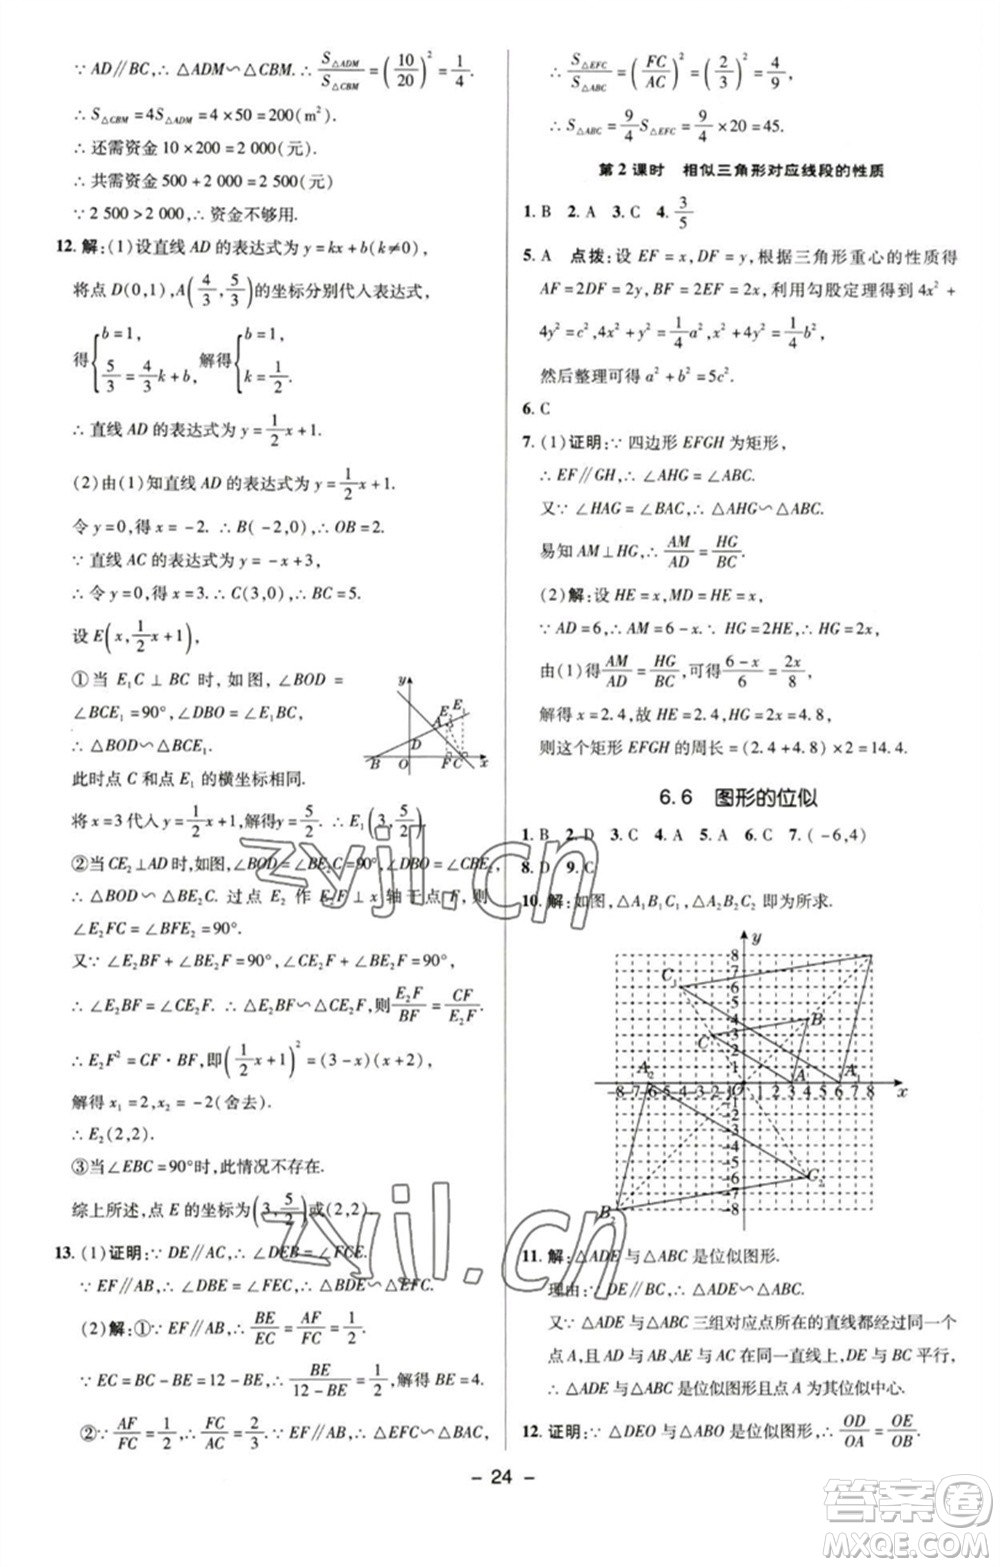 ∵ AD∥BC,∴ △ADM∽△CBM.∴ S△ADM/S△CBM=(10/20)²=1/4.
∴ S△CBM=4S△ADM=4×50=200(m²).
∴ 还需资金 10×200=2 000(元).
∴ 共需资金 500+2 000=2 500(元)
∵ 2 500>2 000,∴ 资金不够用.
12. 解:(1)设直线 AD 的表达式为 y=kx+b(k≠0),
将点 D(0,1),A(4/3,5/3)的坐标分别代入表达式,
得{b=1, 5/3=4/3k+b, 解得{b=1, k=1/2.
∴ 直线 AD 的表达式为 y=1/2x+1.
(2)由(1)知直线 AD 的表达式为 y=1/2x+1.
令 y=0,得 x=-2. ∴ B(-2,0),∴ OB=2.
∵ 直线 AC 的表达式为 y=-x+3,
∴ 令 y=0,得 x=3.∴ C(3,0),∴ BC=5.
设 E(x,1/2x+1),
①当 E₁C⊥BC 时,如图,∠BOD=
∠BCE₁=90°,∠DBO=∠E₁BC,
∴ △BOD∽△BCE₁.
此时点 C 和点 E₁ 的横坐标相同.
将 x=3 代入 y=1/2x+1,解得 y=5/2. ∴ E₁(3,5/2)
②当 CE₂⊥AD 时,如图,∠BOD=∠BE₂C=90°,
∴ △BOD∽△BE₂C. 过点 E₂ 作 E₂F⊥x 轴于点 F,则
∠E₂FC=∠BFE₂=90°.
又∵ ∠E₂BF+∠BE₂F=∠CE₂F+∠BE₂F=90°.
∴ ∠E₂BF=∠CE₂F. ∴ △E₂BF∽△CE₂F,则E₂F/BF=CF/E₂F.
∴ E₂F²=CF·BF,即(1/2x+1)²=(3-x)(x+2),
解得 x₁=2,x₂=-2(舍去).
∴ E₂(2,2).
③当∠EBC=90°时,此情况不存在.
综上所述,点 E 的坐标为(3,5/2)或(2,2).
13. (1)证明:∵ DE∥AC,∴ ∠DEB=∠FCE.
∵ EF∥AB,∴ ∠DBE=∠FEC,∴ △BDE∽△EFC.
(2)解:①∵ EF∥AB,∴ BE/EC=AF/FC=1/2.
∵ EC=BC-BE=12-BE,∴ BE/12-BE=1/2,解得 BE=4.
②∵ AF/FC=1/2,∴ FC/AC=2/3.∵ EF∥AB,∴ △EFC∽△BAC,
y
E
E₁
A
D
B
O
F
C
x
∴ S△EFC/S△ABC=(FC/AC)²=(2/3)²=4/9,
∴ S△ABC=9/4S△EFC=9/4×20=45.
第 2 课时 相似三角形对应线段的性质
1. B 2. A 3. C 4. 3/5
5. A 点拨:设 EF=x,DF=y,根据三角形重心的性质得
AF=2DF=2y,BF=2EF=2x,利用勾股定理得到 4x²+
4y²=c²,4x²+y²=1/4a²,x²+4y²=1/4b²,
然后整理可得 a²+b²=5c².
6. C
7. (1)证明:∵ 四边形 EFGH 为矩形,
∴ EF∥GH,∴ ∠AHG=∠ABC.
又∵ ∠HAG=∠BAC,∴ △AHG∽△ABC.
易知 AM⊥HG,∴ AM/AD=HG/BC.
(2)解:设 HE=x,MD=HE=x,
∵ AD=6,∴ AM=6-x.∵ HG=2HE,∴ HG=2x,
由(1)得AM/AD=HG/BC,可得6-x/6=2x/8,
解得 x=2.4,故 HE=2.4,HG=2x=4.8,
则这个矩形 EFGH 的周长=(2.4+4.8)×2=14.4.
6.6 图形的位似
1. B 2. D 3. C 4. A 5. A 6. C 7. (-6,4)
8. D 9. C
10. 解:如图,△A₁B₁C₁,△A₂B₂C₂ 即为所求.
y
8
7
6
5
4
3
2
C₁
B
C
A₂
A
A₁
O
x
-8-7-6-5-4-3-2-1
1 2 3 4 5 6 7 8
C₂
B
-6
-7
-8
11. 解:△ADE 与△ABC 是位似图形.
理由:∵ DE∥BC,∴ △ADE∽△ABC.
又∵ △ADE 与△ABC 三组对应点所在的直线都经过同一个
点 A,且 AD 与 AB、AE 与 AC 在同一直线上,DE 与 BC 平行,
∴ △ADE 与△ABC 是位似图形且点 A 为其位似中心.
12. 证明:∵ △DEO 与△ABO 是位似图形,∴ OD/OA=OE/OB.
- 24 -
zyjl.cn
zyjl.cn
答案圈
MXQE.COM